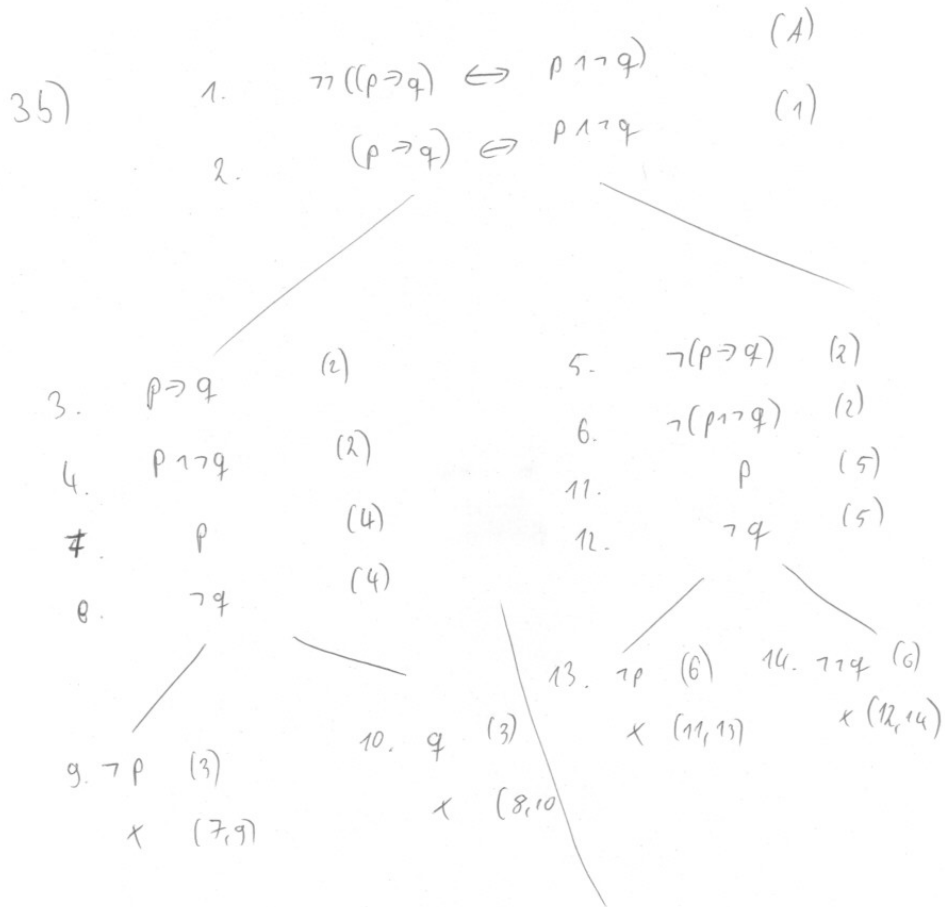 3b) 1. ¬¬((p→q) ↔ p∧¬q) (A)
2. (p→q) ↔ p∧¬q (1)
3. p→q (2)
4. p∧¬q (2)
7. p (4)
8. ¬q (4)
9. ¬p (3)
x (7,9)
10. q (3)
x (8,10
5. ¬(p→q) (2)
6. ¬(p∧¬q) (2)
11. p (5)
12. ¬q (5)
13. ¬p (6)
x (11,13)
14. ¬¬q (6)
x (12,14)